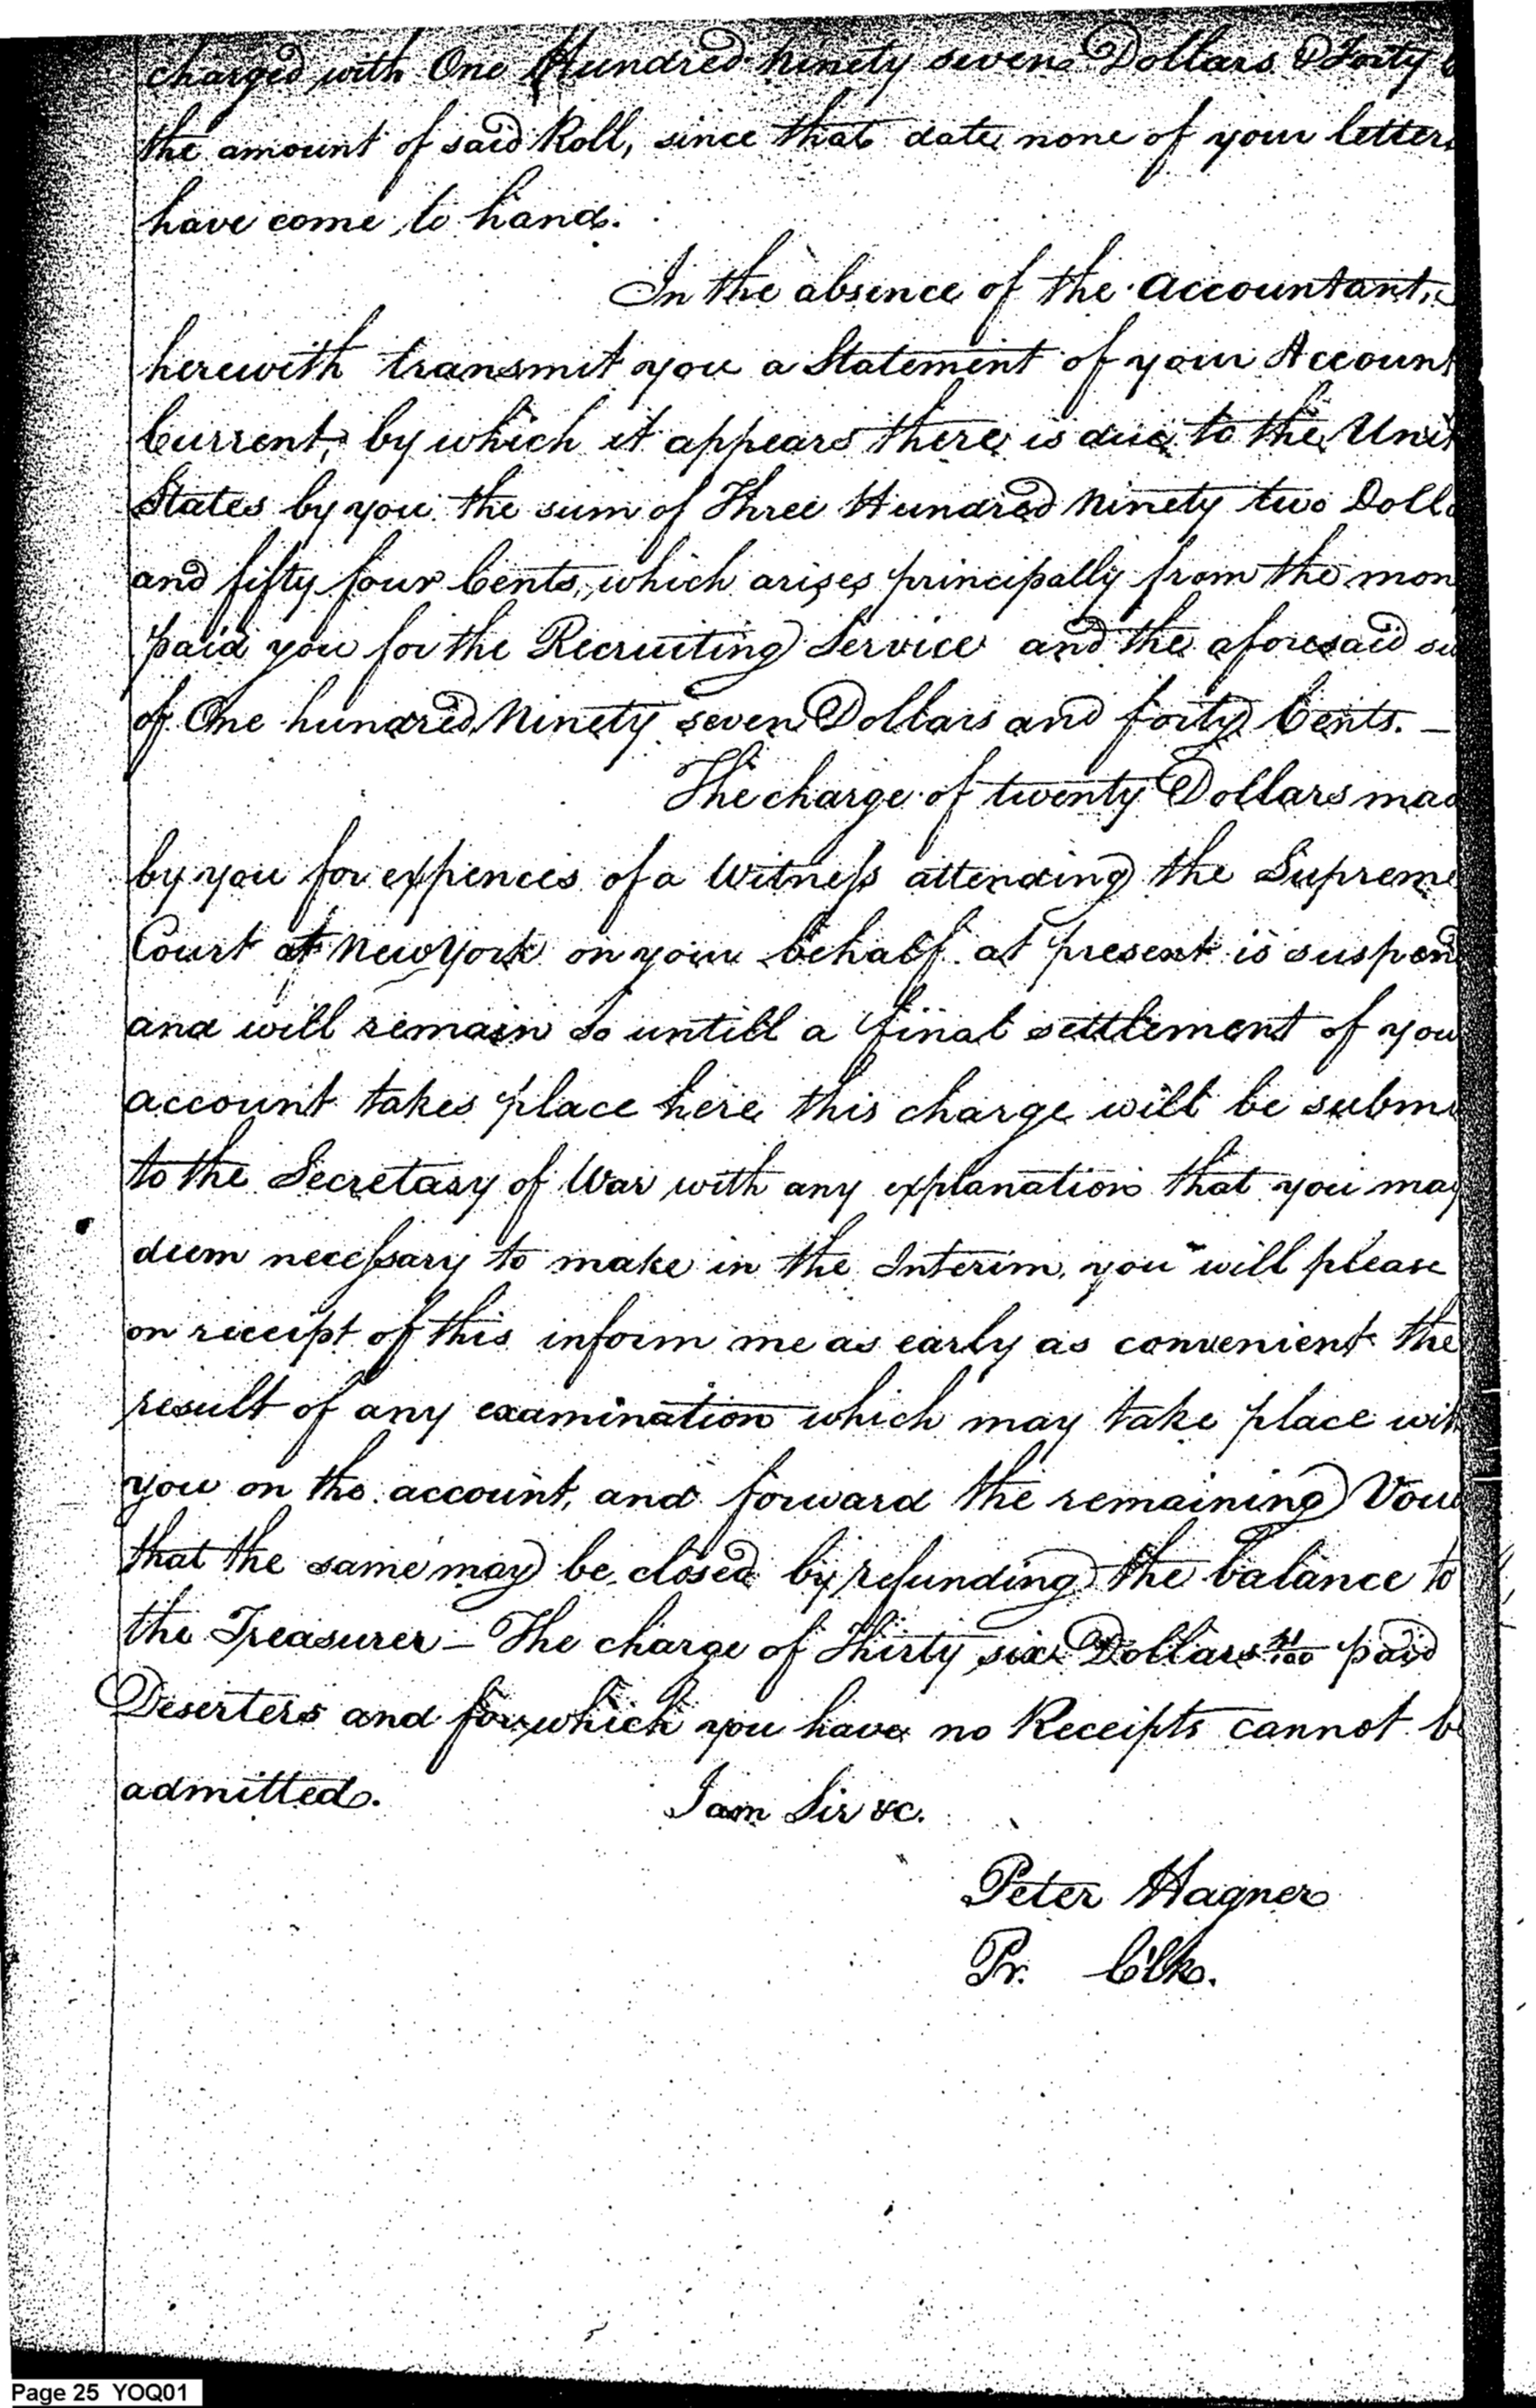 charged with One Hundred ninety seven Dollars & Forty
the amount of said Roll, since that date none of your letters
have come to hand.
In the absence of the Accountant,
herewith transmit you a Statement of your Account
Current, by which it appears there is due to the Unit
States by you the sum of Three Hundred Ninety two Doll
and fifty four Cents, which arises principally from the mon
paid you for the Recruiting Service and the aforesaid su
of One hundred Ninety seven Dollars and forty Cents. —
The charge of twenty Dollars mad
by you for expences of a Witness attending the Supreme
Court at New York on your behalf at present is suspend
and will remain so untill a final settlement of you
account takes place here this charge will be submi
to the Secretary of War with any explanation that you may
deem necessary to make in the Interim, you will please
on receipt of this inform me as early as convenient the
result of any examination which may take place wit
you on the account, and forward the remaining Vou
that the same may be closed by refunding the balance to
the Treasurer — The charge of Thirty six Dollars paid
Deserters and for which you have no Receipts cannot b
admitted.
I am Sir &c.
Peter Hagner
Pr. Clk.
Page 25 YOQ01